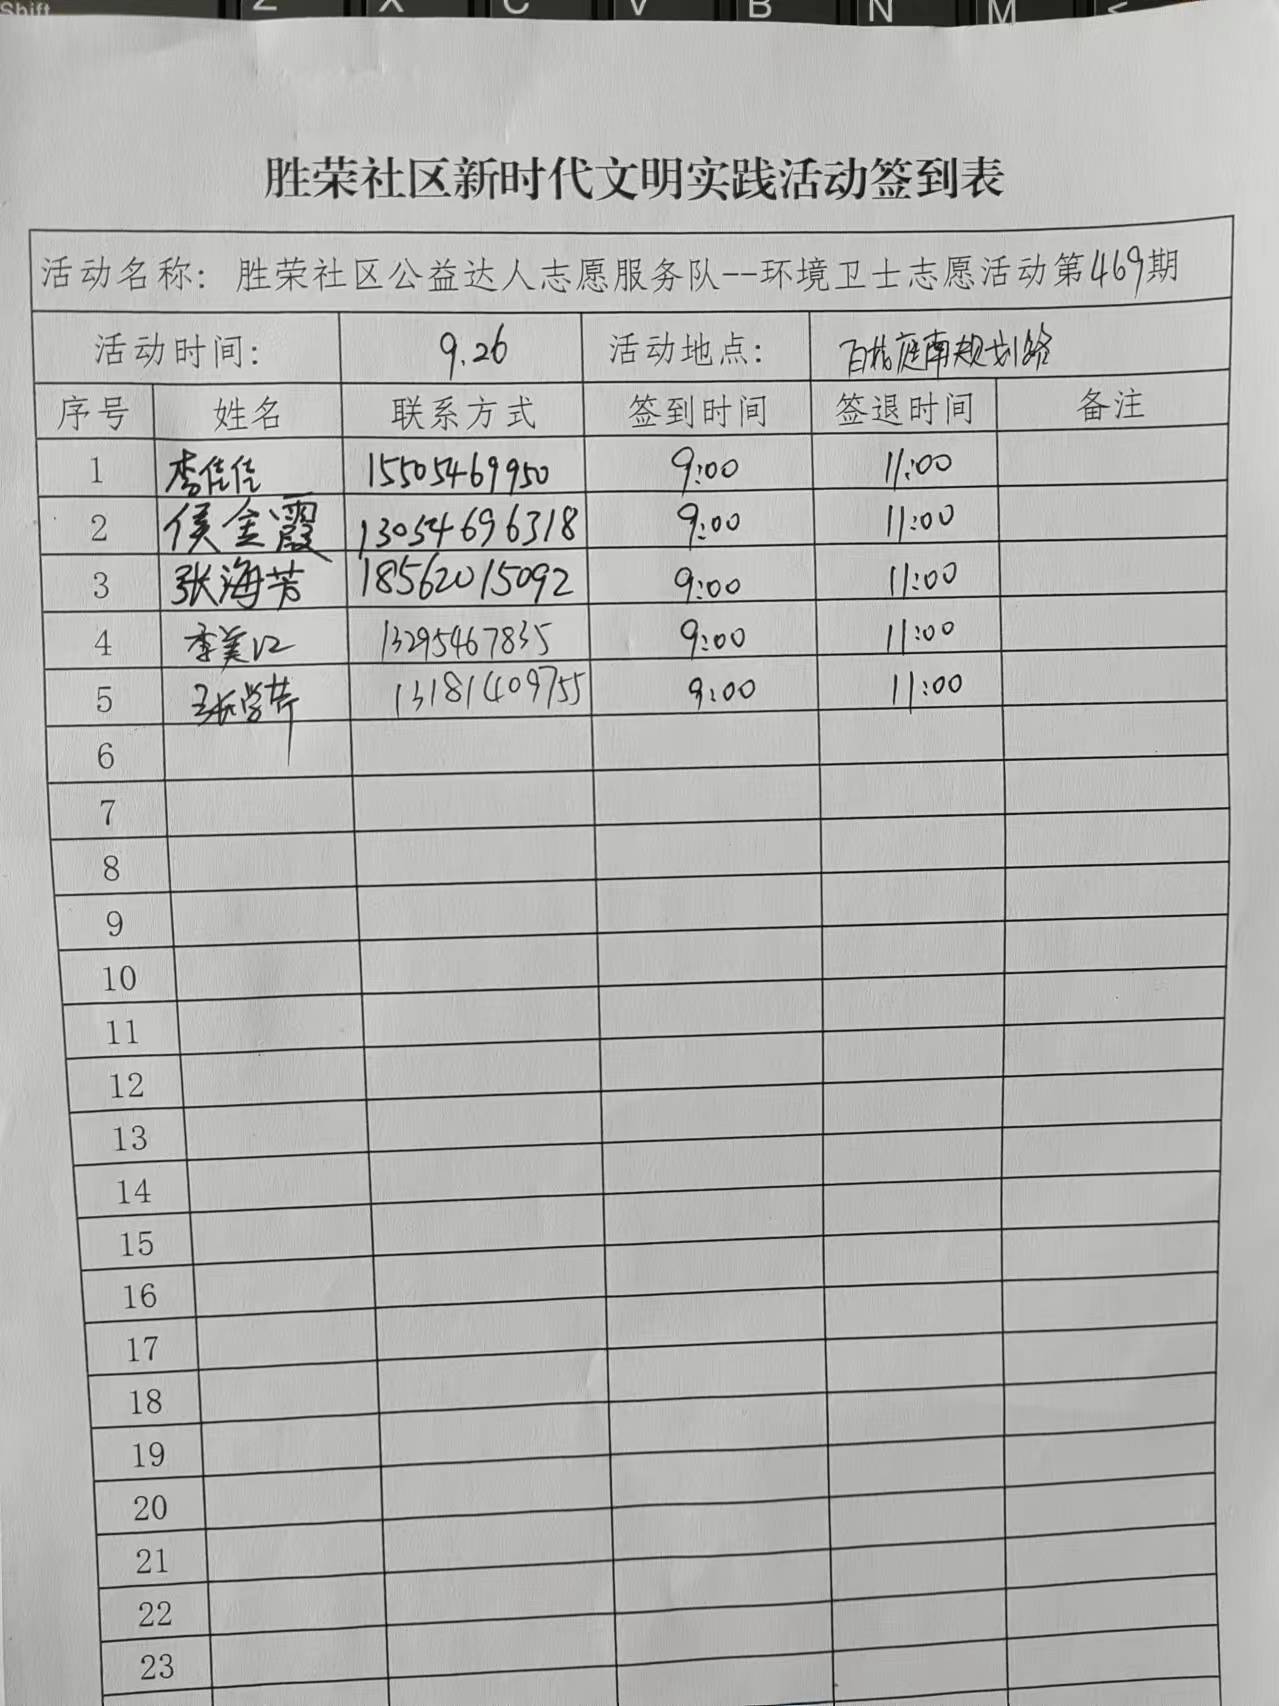 Shift Z X C V B N M <
胜荣社区新时代文明实践活动签到表
活动名称：胜荣社区公益达人志愿服务队--环境卫士志愿活动第469期
活动时间： 9.26 活动地点： 百花庭南规划路
序号 姓名 联系方式 签到时间 签退时间 备注
1 李佳佳 15505469950 9:00 11:00
2 侯金霞 13054696318 9:00 11:00
3 张海芳 18562015092 9:00 11:00
4 李美江 13295467835 9:00 11:00
5 张学芹 13181409755 9:00 11:00
6
7
8
9
10
11
12
13
14
15
16
17
18
19
20
21
22
23